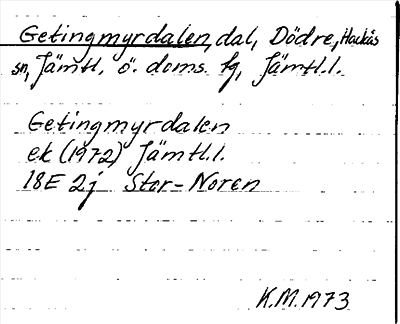 Getingmyrdalen, dal, Dödre, Hackås
sn, Jämtl. ö. doms. fg, Jämtl.l.
Getingmyrdalen
ek (1972) Jämtl.l.
18E 2j Stor-Noren
K.M. 1973